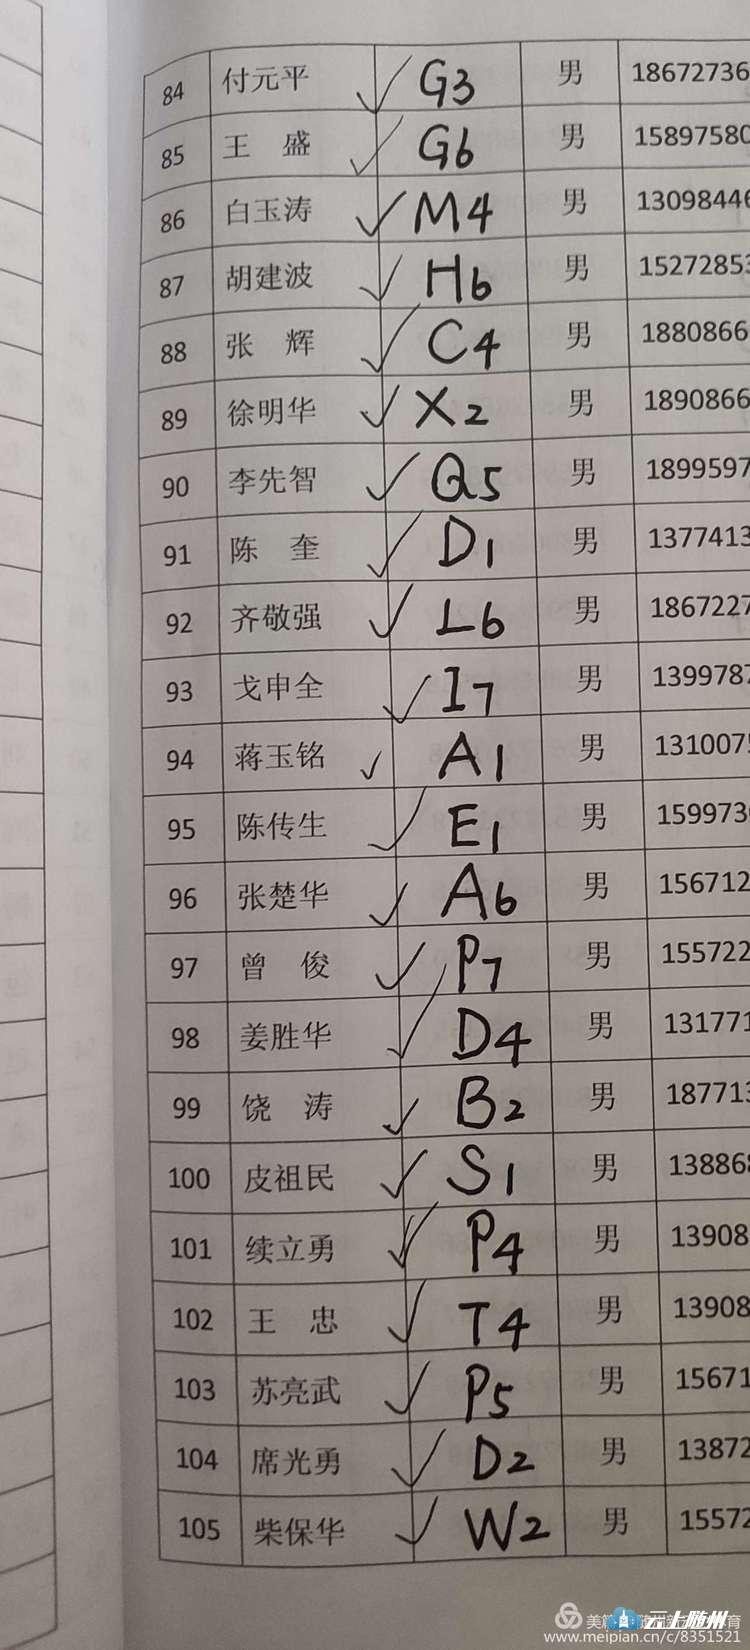 84 付元平 ✓ G3 男 18672736
85 王 盛 ✓ G6 男 15897580
86 白玉涛 ✓ M4 男 13098446
87 胡建波 ✓ H6 男 15272853
88 张 辉 ✓ C4 男 1880866
89 徐明华 ✓ X2 男 1890866
90 李先智 ✓ Q5 男 1899597
91 陈 奎 ✓ D1 男 1377413
92 齐敬强 ✓ L6 男 1867227
93 戈申全 ✓ I7 男 1399787
94 蒋玉铭 ✓ A1 男 1310075
95 陈传生 ✓ E1 男 159973
96 张楚华 ✓ A6 男 156712
97 曾 俊 ✓ P7 男 155722
98 姜胜华 ✓ D4 男 131771
99 饶 涛 ✓ B2 男 187713
100 皮祖民 ✓ S1 男 13886
101 续立勇 ✓ P4 男 13908
102 王 忠 ✓ T4 男 13908
103 苏亮武 ✓ P5 男 15671
104 席光勇 ✓ D2 男 13872
105 柴保华 ✓ W2 男 15572
云上随州
www.meipian.cn/c/8351521